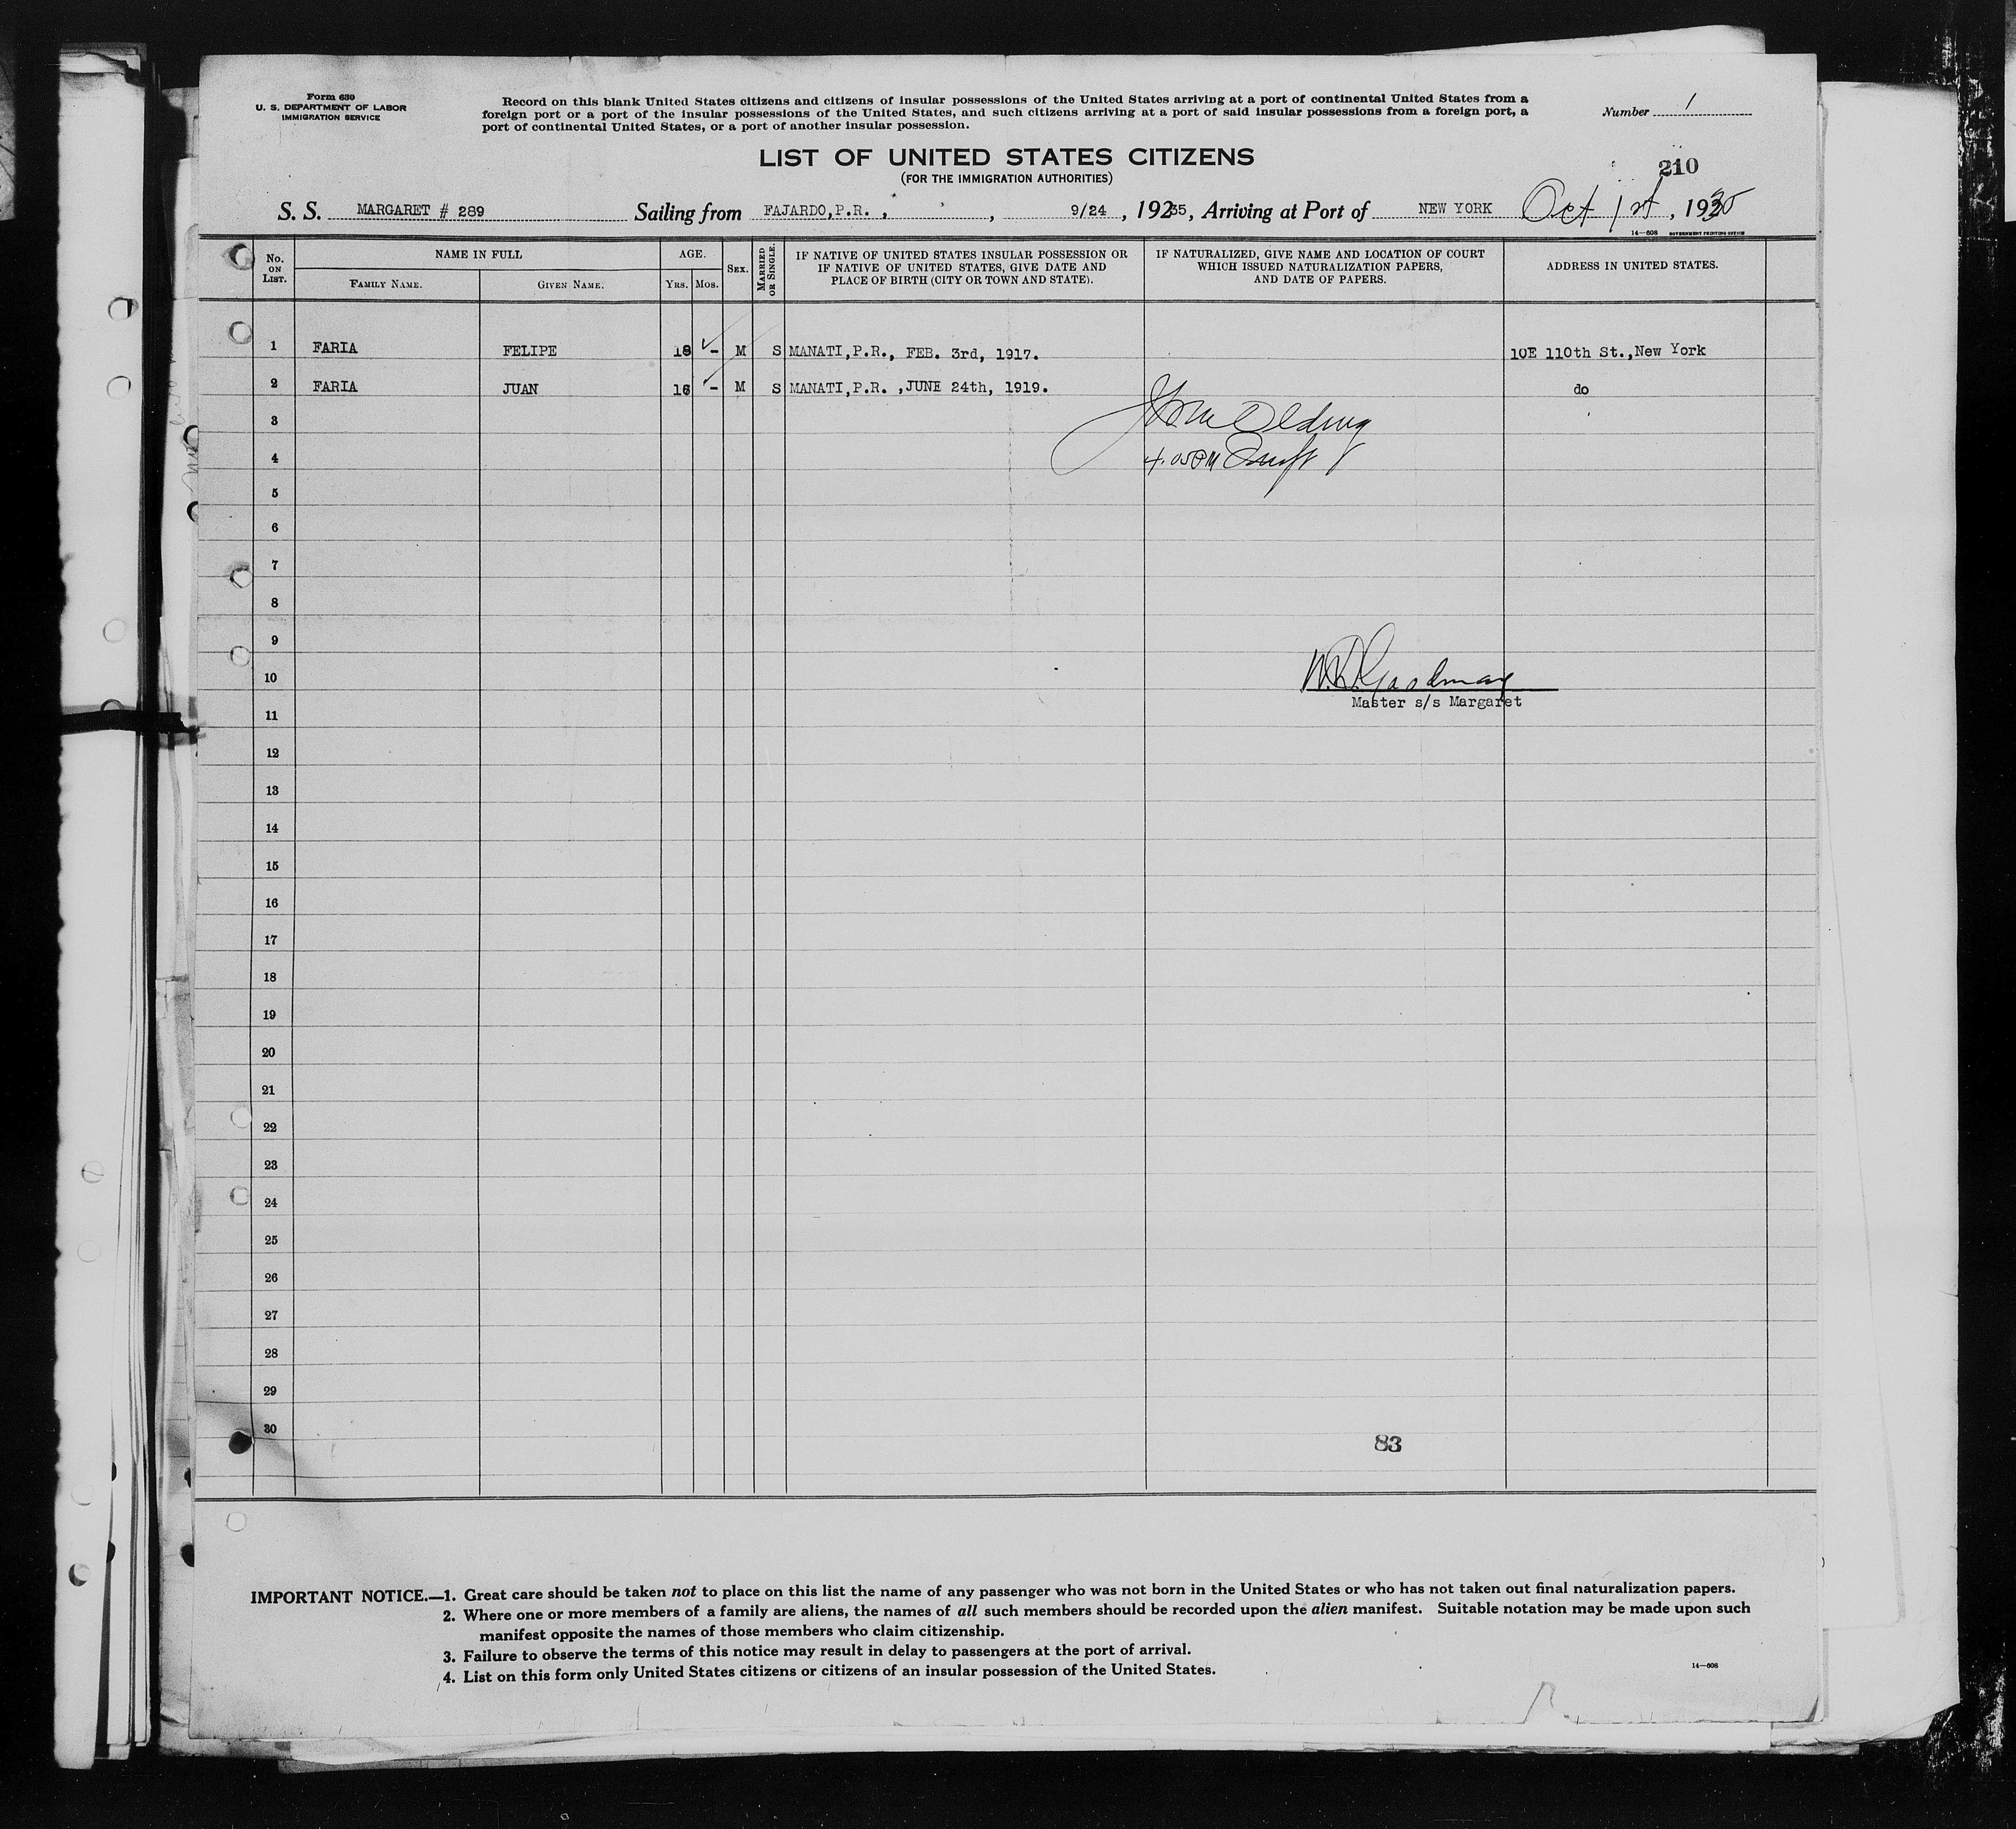 Form 630
U. S. DEPARTMENT OF LABOR
IMMIGRATION SERVICE
Record on this blank United States citizens and citizens of insular possessions of the United States arriving at a port of continental United States from a
foreign port or a port of the insular possessions of the United States, and such citizens arriving at a port of said insular possessions from a foreign port, a
port of continental United States, or a port of another insular possession.
Number 1
LIST OF UNITED STATES CITIZENS
(FOR THE IMMIGRATION AUTHORITIES)
210
S. S. MARGARET # 289 Sailing from FAJARDO, P.R. , , 9/24 , 19235, Arriving at Port of NEW YORK Oct 1st , 193
14—608 GOVERNMENT PRINTING OFFICE
No. ON LIST. NAME IN FULL AGE. SEX. MARRIED OR SINGLE. IF NATIVE OF UNITED STATES INSULAR POSSESSION OR IF NATIVE OF UNITED STATES, GIVE DATE AND PLACE OF BIRTH (CITY OR TOWN AND STATE). IF NATURALIZED, GIVE NAME AND LOCATION OF COURT WHICH ISSUED NATURALIZATION PAPERS, AND DATE OF PAPERS. ADDRESS IN UNITED STATES.
FAMILY NAME. GIVEN NAME. YRS. MOS.
1 FARIA FELIPE 18 - M S MANATI, P.R., FEB. 3rd, 1917. 10E 110th St., New York
2 FARIA JUAN 16 - M S MANATI, P.R. , JUNE 24th, 1919. do
3
4 4.05PM
5
6
7
8
9
10
11 Master s/s Margaret
12
13
14
15
16
17
18
19
20
21
22
23
24
25
26
27
28
29
30
83
IMPORTANT NOTICE.—1. Great care should be taken not to place on this list the name of any passenger who was not born in the United States or who has not taken out final naturalization papers.
2. Where one or more members of a family are aliens, the names of all such members should be recorded upon the alien manifest. Suitable notation may be made upon such
manifest opposite the names of those members who claim citizenship.
3. Failure to observe the terms of this notice may result in delay to passengers at the port of arrival.
4. List on this form only United States citizens or citizens of an insular possession of the United States.
14—608